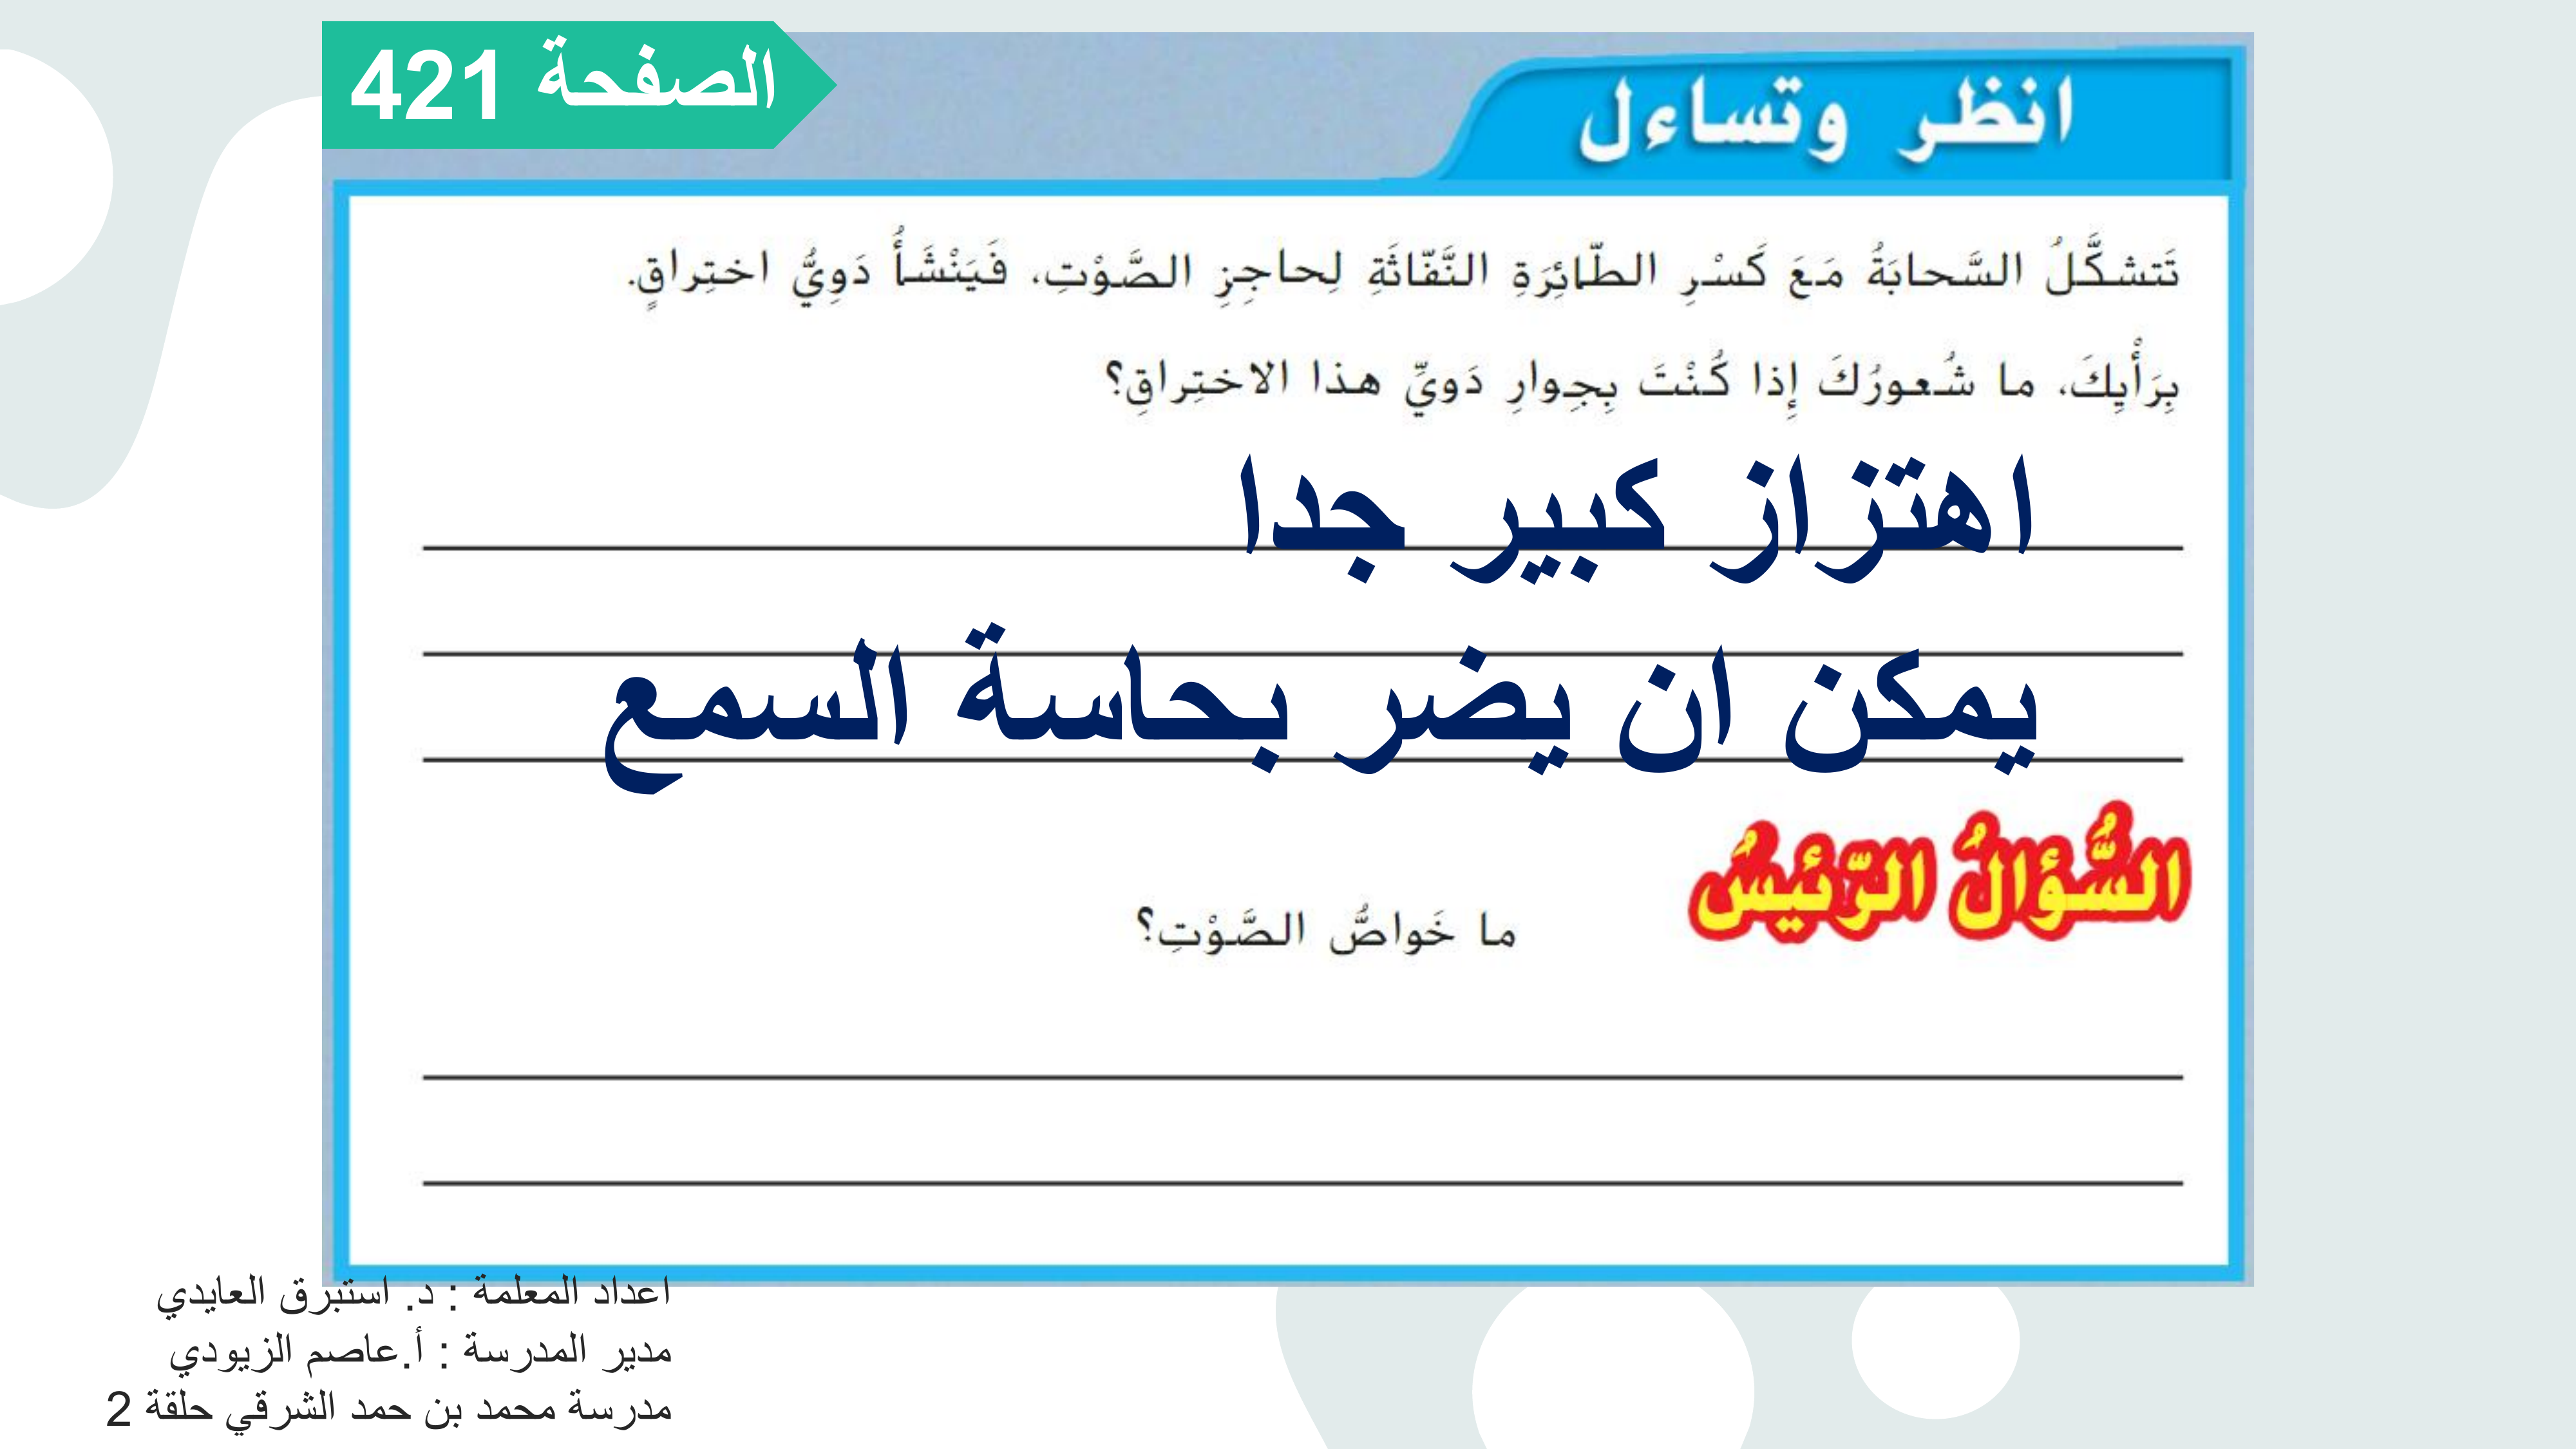 الصفحة 421
انظر وتساءل
تَتشكَّلُ السَّحابَةُ مَعَ كَسْرِ الطّائِرَةِ النَّفّاثَةِ لِحاجِزِ الصَّوْتِ، فَيَنْشَأُ دَوِيُّ اختِراقٍ.
بِرَأْيِكَ، ما شُعورُكَ إِذا كُنْتَ بِجِوارِ دَويِّ هذا الاختِراقِ؟
اهتزاز كبير جدا
يمكن ان يضر بحاسة السمع
السُّؤالُ الرّئيسُ
ما خَواصُّ الصَّوْتِ؟
اعداد المعلمة : د. استبرق العايدي
مدير المدرسة : أ.عاصم الزيودي
مدرسة محمد بن حمد الشرقي حلقة 2